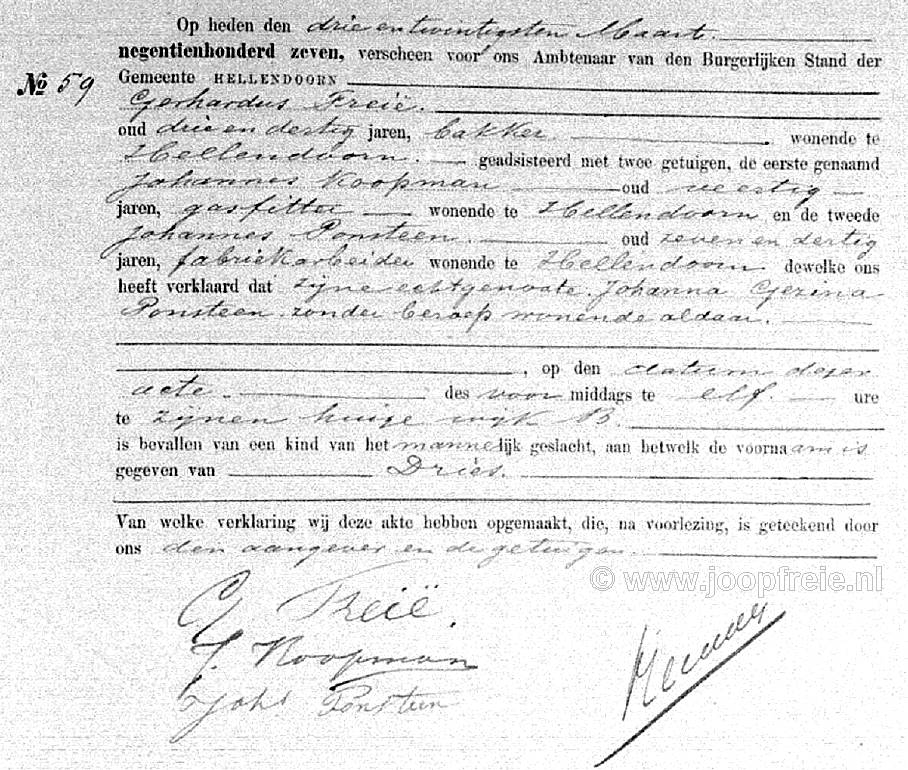 Op heden den drie en twintigsten Maart.
negentienhonderd zeven, verscheen voor ons Ambtenaar van den Burgerlijken Stand der
№ 59
Gemeente HELLENDOORN
Gerhardus Freië.
oud drie en dertig jaren, bakker. wonende te
Hellendoorn. geadsisteerd met twee getuigen, de eerste genaamd
Johannes Koopman oud veertig
jaren, gasfitter wonende te Hellendoorn en de tweede
Johannes Ponsteen. oud zeven en dertig
jaren, fabriekarbeider wonende te Hellendoorn dewelke ons
heeft verklaard dat zijne echtgenoote, Johanna Gezina
Ponsteen zonder beroep wonende aldaar.
, op den datum dezer
acte des voor middags te elf. ure
te zijnen huize wijk B.
is bevallen van een kind van het mannelijk geslacht, aan hetwelk de voornaam is
gegeven van Dries.
Van welke verklaring wij deze akte hebben opgemaakt, die, na voorlezing, is geteekend door
ons den aangever en de getuigen.
© www.joopfreie.nl
G Freië.
J. Koopman
Johs Ponsteen